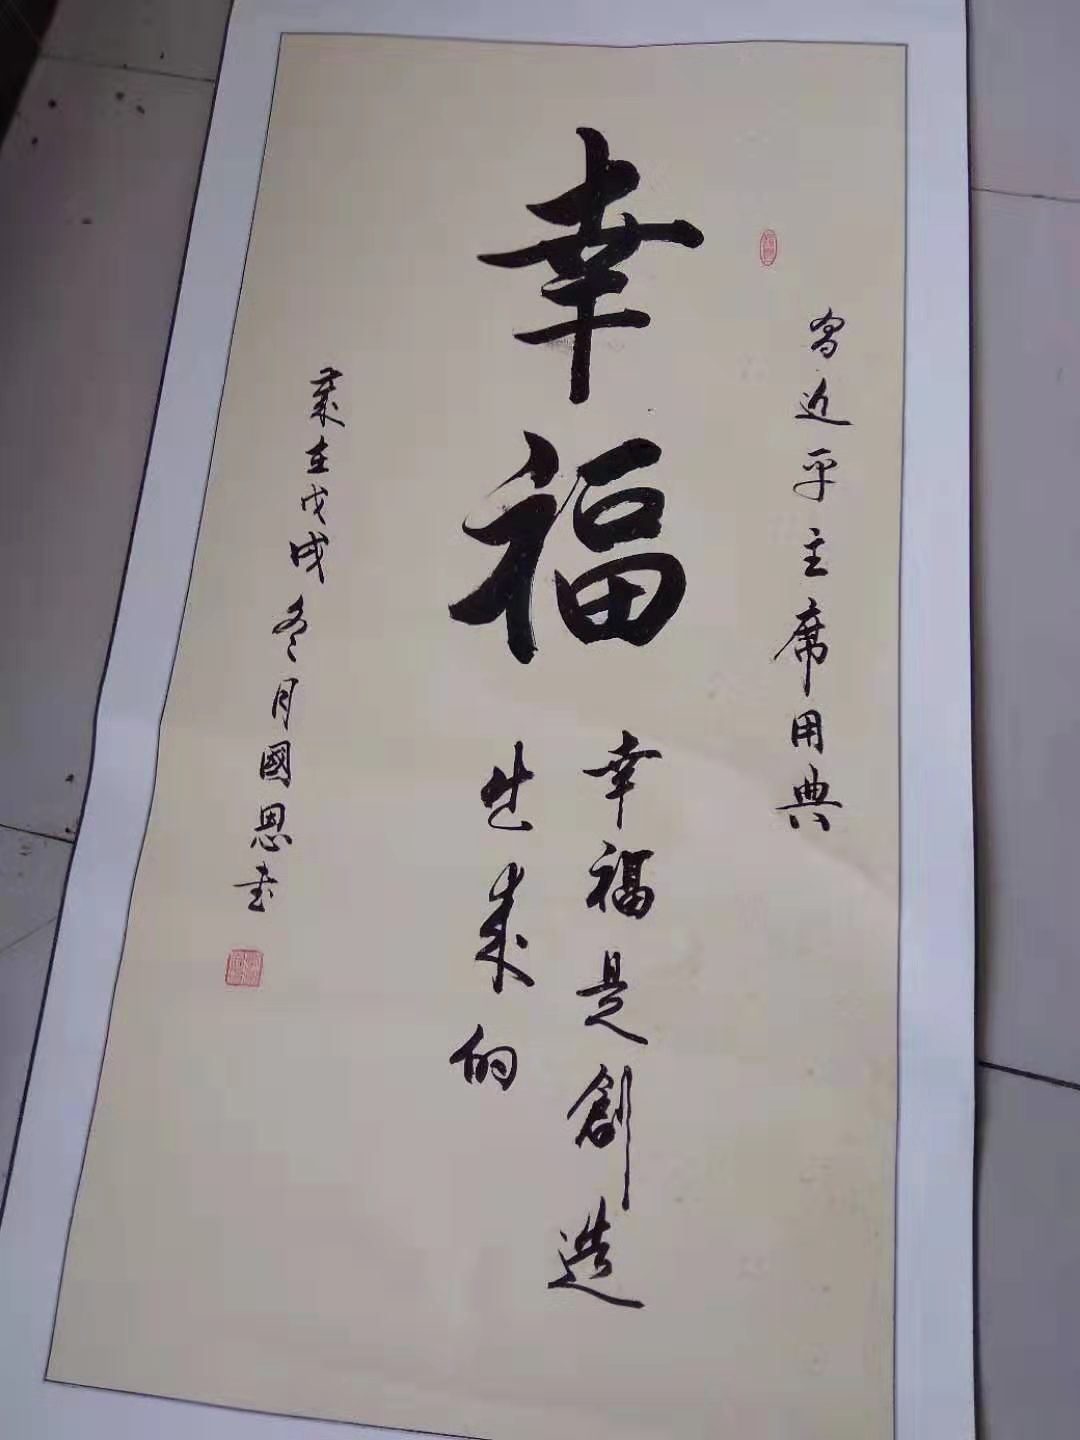 習近平主席用典
幸福
幸福是創造
出來的
歲在戊戌冬月國恩书